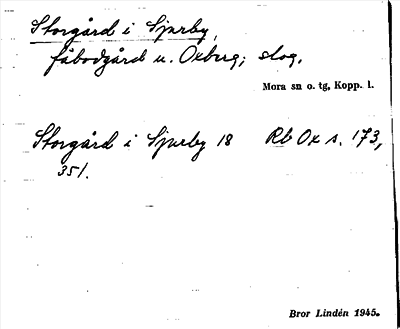 Storgård i Sjurby,
fäbodgård u. Oxberg; skog.
Mora sn o. tg, Kopp. l.
Storgård i Sjurby 18 Rb Ox s. 173,
351.
Bror Lindén 1945.